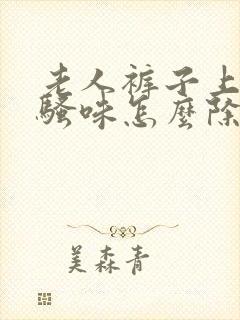 老人裤子上
骚味怎麽除
美森青